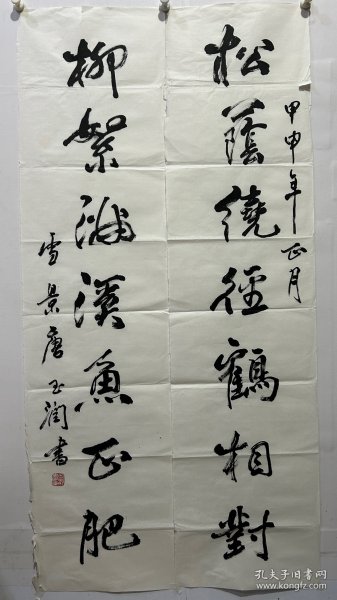 甲申年正月
松蔭繞徑鶴相對
柳絮滿溪魚正肥
雪景唐玉潤書
孔夫子旧书网
www.kongfz.com